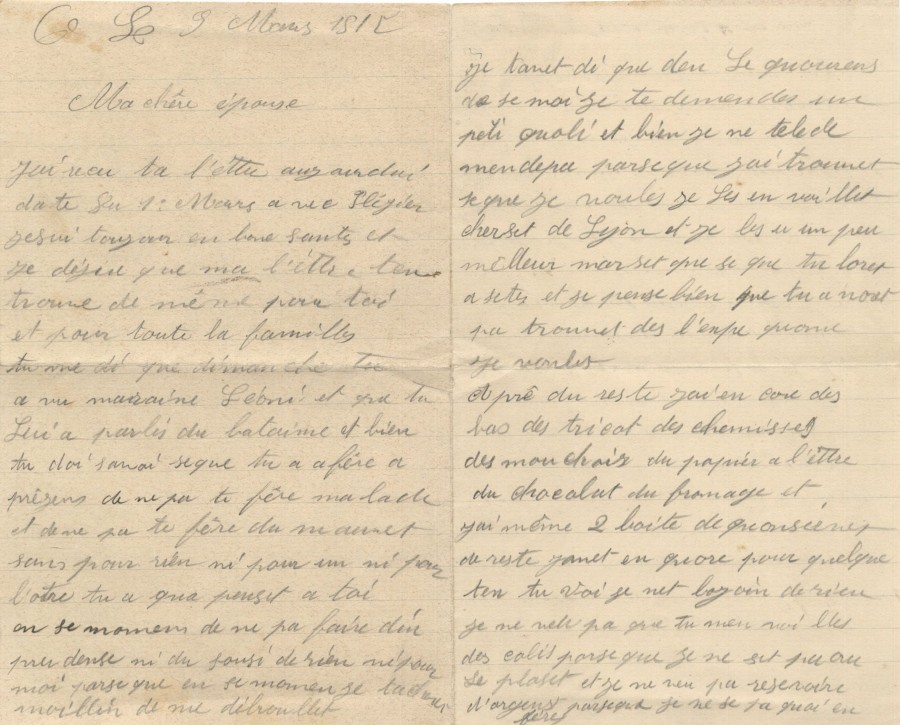 Le 9 Mars 1915
Ma chère épouse
jai reçu ta l'éttre aujourdui
date du 1: Mars avec Plégier
jesui toujour en bone santé et
je désire que ma l'éttre ten
trouve de même pour toi
et pour toute la familles
tu me di que dimanche tu
a vu maraine Léoni et que tu
Lui a parlés du bataime et bien
tu doi savoi seque tu a afére a
présens de ne pa te fére malade
et de ne pa te fére du mauvet
sans pour rien ni pour un ni pour
l'otre tu a qua penset a toi
en se momens de ne pa faire din
prudense ni du sousi de rien ni pour
moi parseque en se momen je
moillin de me débroullet
Je tavet di que den le quourens
de se moi je te demendes un
peti quoli et bien je ne tele de
mendepa parseque jai trouvet
seque je voules je Les en voillet
cherset de Lyon et je les u un peu
meilleur marset que se que tu lores
a setes et je pense bien que tu a noret
pa trouvet des l'enpe quome
je voules
Aprê du reste j'ai en core des
bas des tricot des chemisses
des mouchoir du papier a l'éttre
du chocolat du fromage et
jai même 2 boite de quonserves
de reste javet en quore pour quelque
ten tu voi je net bezoin de rien
je ne veu pa que tu men voi lles
des colis parseque je ne set pa ou
Le plaset et je ne veu pa resevoire
d'argens parseque je ne se pa quoi en
fére